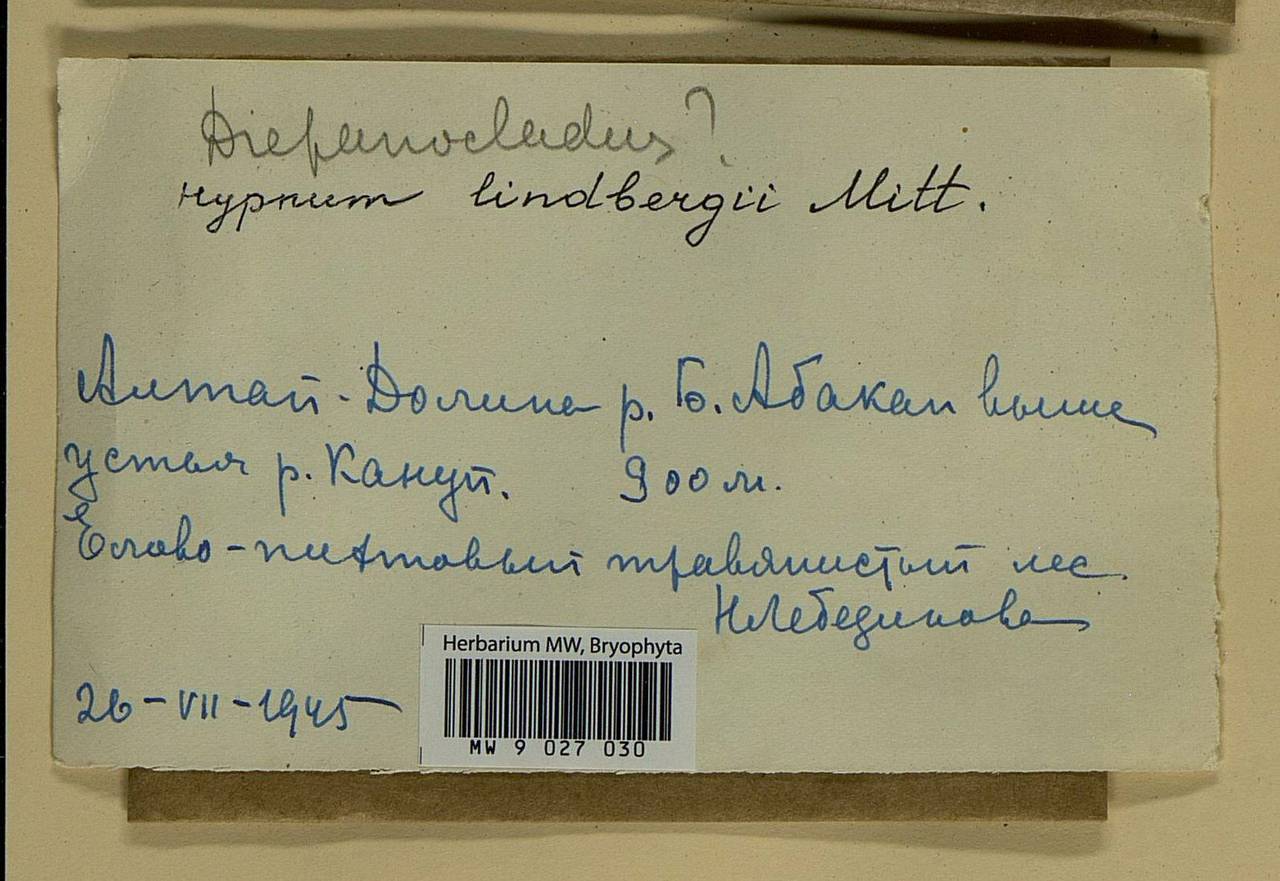 Drepanocladus?
Hypnum lindbergii Mitt.
Алтай - Долина р. Б. Абакан выше
устья р. Кануй. 900 м.
Елово-пихтовый травянистый лес.
Н Лебединова
26-VII-1945
Herbarium MW, Bryophyta
MW 9 027 030